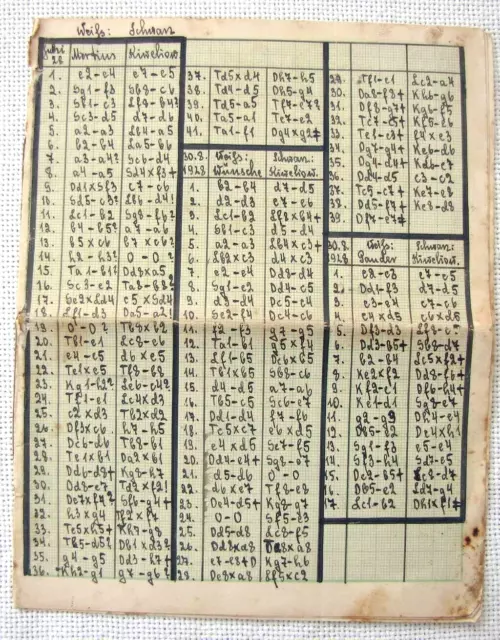 Weiß: Schwarz
Juni 28 Martius Kiweliow.
1. e2-e4 e7-e5
2. Sg1-f3 Sb8-c6
3. Sb1-c3 Lf8-b4?
4. Sc3-d5 d7-d6
5. a2-a3 Lb4-a5
6. b2-b4 La5-b6
7. a3-a4? Sc6-d4
8. a4-a5 Sd4xf3+
9. Dd1xf3 c7-c6
10. Sd5-c3? Lb6-d4!
11. Lc1-b2 Sg8-f6?
12. b4-b5? a7-a6
13. b5xc6 b7xc6?
14. h2-h3? 0-0?
15. Ta1-b1? Dd8xa5
16. Sc3-e2 Ta8-b8?
17. Se2xd4 e5xSd4
18. Lf1-d3 Da5-a2!
19. 0-0? Tb8xb2
20. Tb1-e1 Lc8-e6
21. e4-e5 d6xe5
22. Te1xe5 Tf8-b8
23. Kg1-h2? Le6-c4?
24. Tf1-e1 Lc4xd3
25. c2xd3 Tb2xd2
26. Df3xc6 h7-h5
27. Dc6-d6 Tb8-b1
28. Te1xb1 Da2xb1
29. Dd6-d8+ Kg8-h7
30. Dd8-e7 Td2xf2!
31. De7xf2? Sf6-g4+
32. h3xg4 Tf2xf7
33. Te5xh5+ Kh7-g8
34. Th5-d5? Db1xd3?
35. g4-g5 Dd3-h7+
36. Kh2-g1 g7-g6?
37. Td5xd4 Dh7-h5
38. Td4-d5 Dh5-g4
39. Td5-a5 Tf7-e7?
40. Ta5-a1 Te7-e2
41. Ta1-f1 Dg4xg2≠
30.8. 1928 Weiß: Wunsche Schwarz: Kiweliow.
1. b2-b4 d7-d5
2. d2-d3 e7-e6
3. Lc1-b2 Lf8xb4+
4. Sb1-d2 d5-d4
5. a2-a3 Lb4xc3+
6. Lb2xc3 d4xc3
7. e2-e4 Dd8-d4
8. Sg1-e2 Dd4-c5
9. d3-d4 Dc5-c4
10. Se2-f4 Dc4-c6
11. f2-f3 g7-g5
12. Ta1-b1 g5xf4
13. Lf1-b5 Dc6xb5
14. Tb1xb5 Sb8-c6
15. d4-d5 a7-a6
16. Tb5-c5 Sc6-e7
17. Dd1-d4 f7-f6
18. Tc5xc7 e6xd5
19. e4xd5 Se7-f5
20. Dd4-e4+ Sg8-e7
21. d5-d6 0-0
22. d6xe7 Tf8-e8
23. De4-d5+ Kg8-g7
24. 0-0 Sf5-e3
25. Dd5-d8 Lc8-f5
26. Dd8xa8 Te8xa8
27. e7-e8+D Kg7-h6
28. De8xa8 Lf5xc2
29. Tf1-e1 Lc2-a4
30. Da8-f8+ Kh6-g6
31. Df8-g7+ Kg6-f5
32. Tc7-c5+ Kf5-e6
33. Te1-e3+ f4xe3
34. Dg7-g4+ Ke6-d6
35. Dg4-d4+ Kd6-e7
36. Dd4-d5 c3-c2
37. Tc5-c7+ Ke7-e8
38. Dd5-f7+ Ke8-d8
39. Df7-e7≠
30.8. 1928 Weiß: Pander Schwarz: Kiweliow.
1. e2-e3 e7-e5
2. Dd1-f3 d7-d5
3. e3-g4 c7-c6
4. c4xd5 c6xd5
5. Df3-d3 Lf8-c5
6. Dd3-b5+ Sb8-d7
7. b2-b4 Lc5xf2+
8. Ke2xf2 Dd8-f6+
9. Kf2-e1 Df6-h4+
10. Ke1-d1 Sg8-e7
11. g2-g3 Dh4-e4
12. Db5-e2 De4xh1
13. Sg1-f3 e5-e4
14. Sf3-h4 Sd7-e5
15. De2-b5+ Lc8-d7
16. Db5-e2 Ld7-g4
17. Lc1-b2 Dh1xf1≠